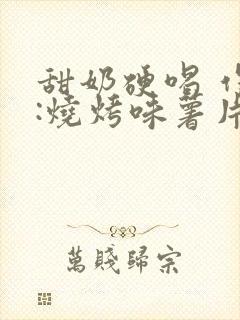 甜奶硬唱
:燒烤味薯片
萬賤歸宗